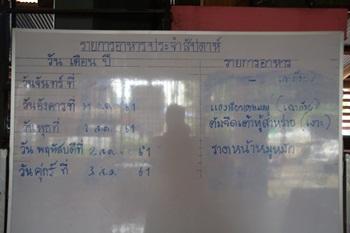 รายการอาหารประจำสัปดาห์
วัน เดือน ปี รายการอาหาร
วันจันทร์ ที่ -
วันอังคารที่ 31 ก.ค. 61
วันพุธที่ 1 ส.ค. 61 ต้มจืดเต้าหู้สาหร่าย (เงาะ)
วัน พฤหัสบดีที่ 2 ส.ค. 61 ราดหน้าหมูหมัก
วันศุกร์ ที่ 3 ส.ค. 61